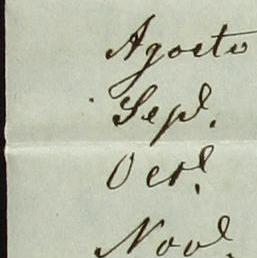 Agosto
Sepl.
Octl.
Novl.